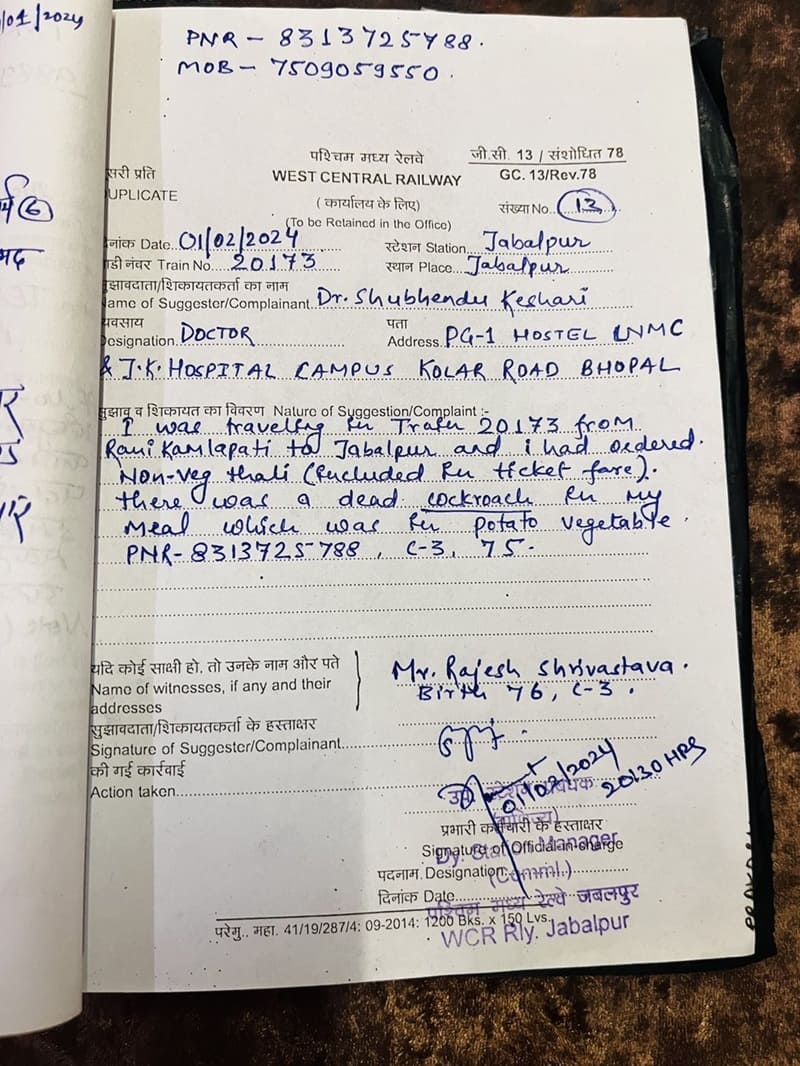 /01/2024
PNR - 8313725788.
MOB - 7509059550.
पश्चिम मध्य रेलवे
जी.सी. 13 / संशोधित 78
सरी प्रति
WEST CENTRAL RAILWAY
GC. 13/Rev.78
UPLICATE
( कार्यालय के लिए)
संख्या No. 13
(To be Retained in the Office)
दिनांक Date. 01/02/2024
स्टेशन Station. Jabalpur
गाडी नंवर Train No. 20173
स्थान Place. Jabalpur
सुझावदाता/शिकायतकर्ता का नाम
Name of Suggester/Complainant. Dr. Shubhendu Keshari
यवसाय
पता
Designation. DOCTOR
Address. PG-1 HOSTEL LNMC
& J.K. HOSPITAL CAMPUS KOLAR ROAD BHOPAL
सुझाव व शिकायत का विवरण Nature of Suggestion/Complaint :-
I was traveling in Train 20173 from
Rani Kamlapati to Jabalpur and i had ordered.
Non-veg thali (included in ticket fare).
there was a dead cockroach in my
meal which was in potato vegetable.
PNR- 8313725788, C-3, 75.
यदि कोई साक्षी हो, तो उनके नाम और पते
Name of witnesses, if any and their
addresses
Mr. Rajesh Shrivastava.
Birth 76, C-3.
सुझावदाता/शिकायतकर्ता के हस्ताक्षर
Signature of Suggester/Complainant
की गई कार्रवाई
Action taken
01/02/2024
20130 HRS
प्रभारी कर्मचारी के हस्ताक्षर
Signature of Official-in-charge
Dy. Station Manager
पदनाम. Designation
(Comml.)
दिनांक Date
पश्चिम मध्य रेल्वे जबलपुर
WCR Rly. Jabalpur
परेमु., महा. 41/19/287/4: 09-2014: 1200 Bks. x 150 Lvs.